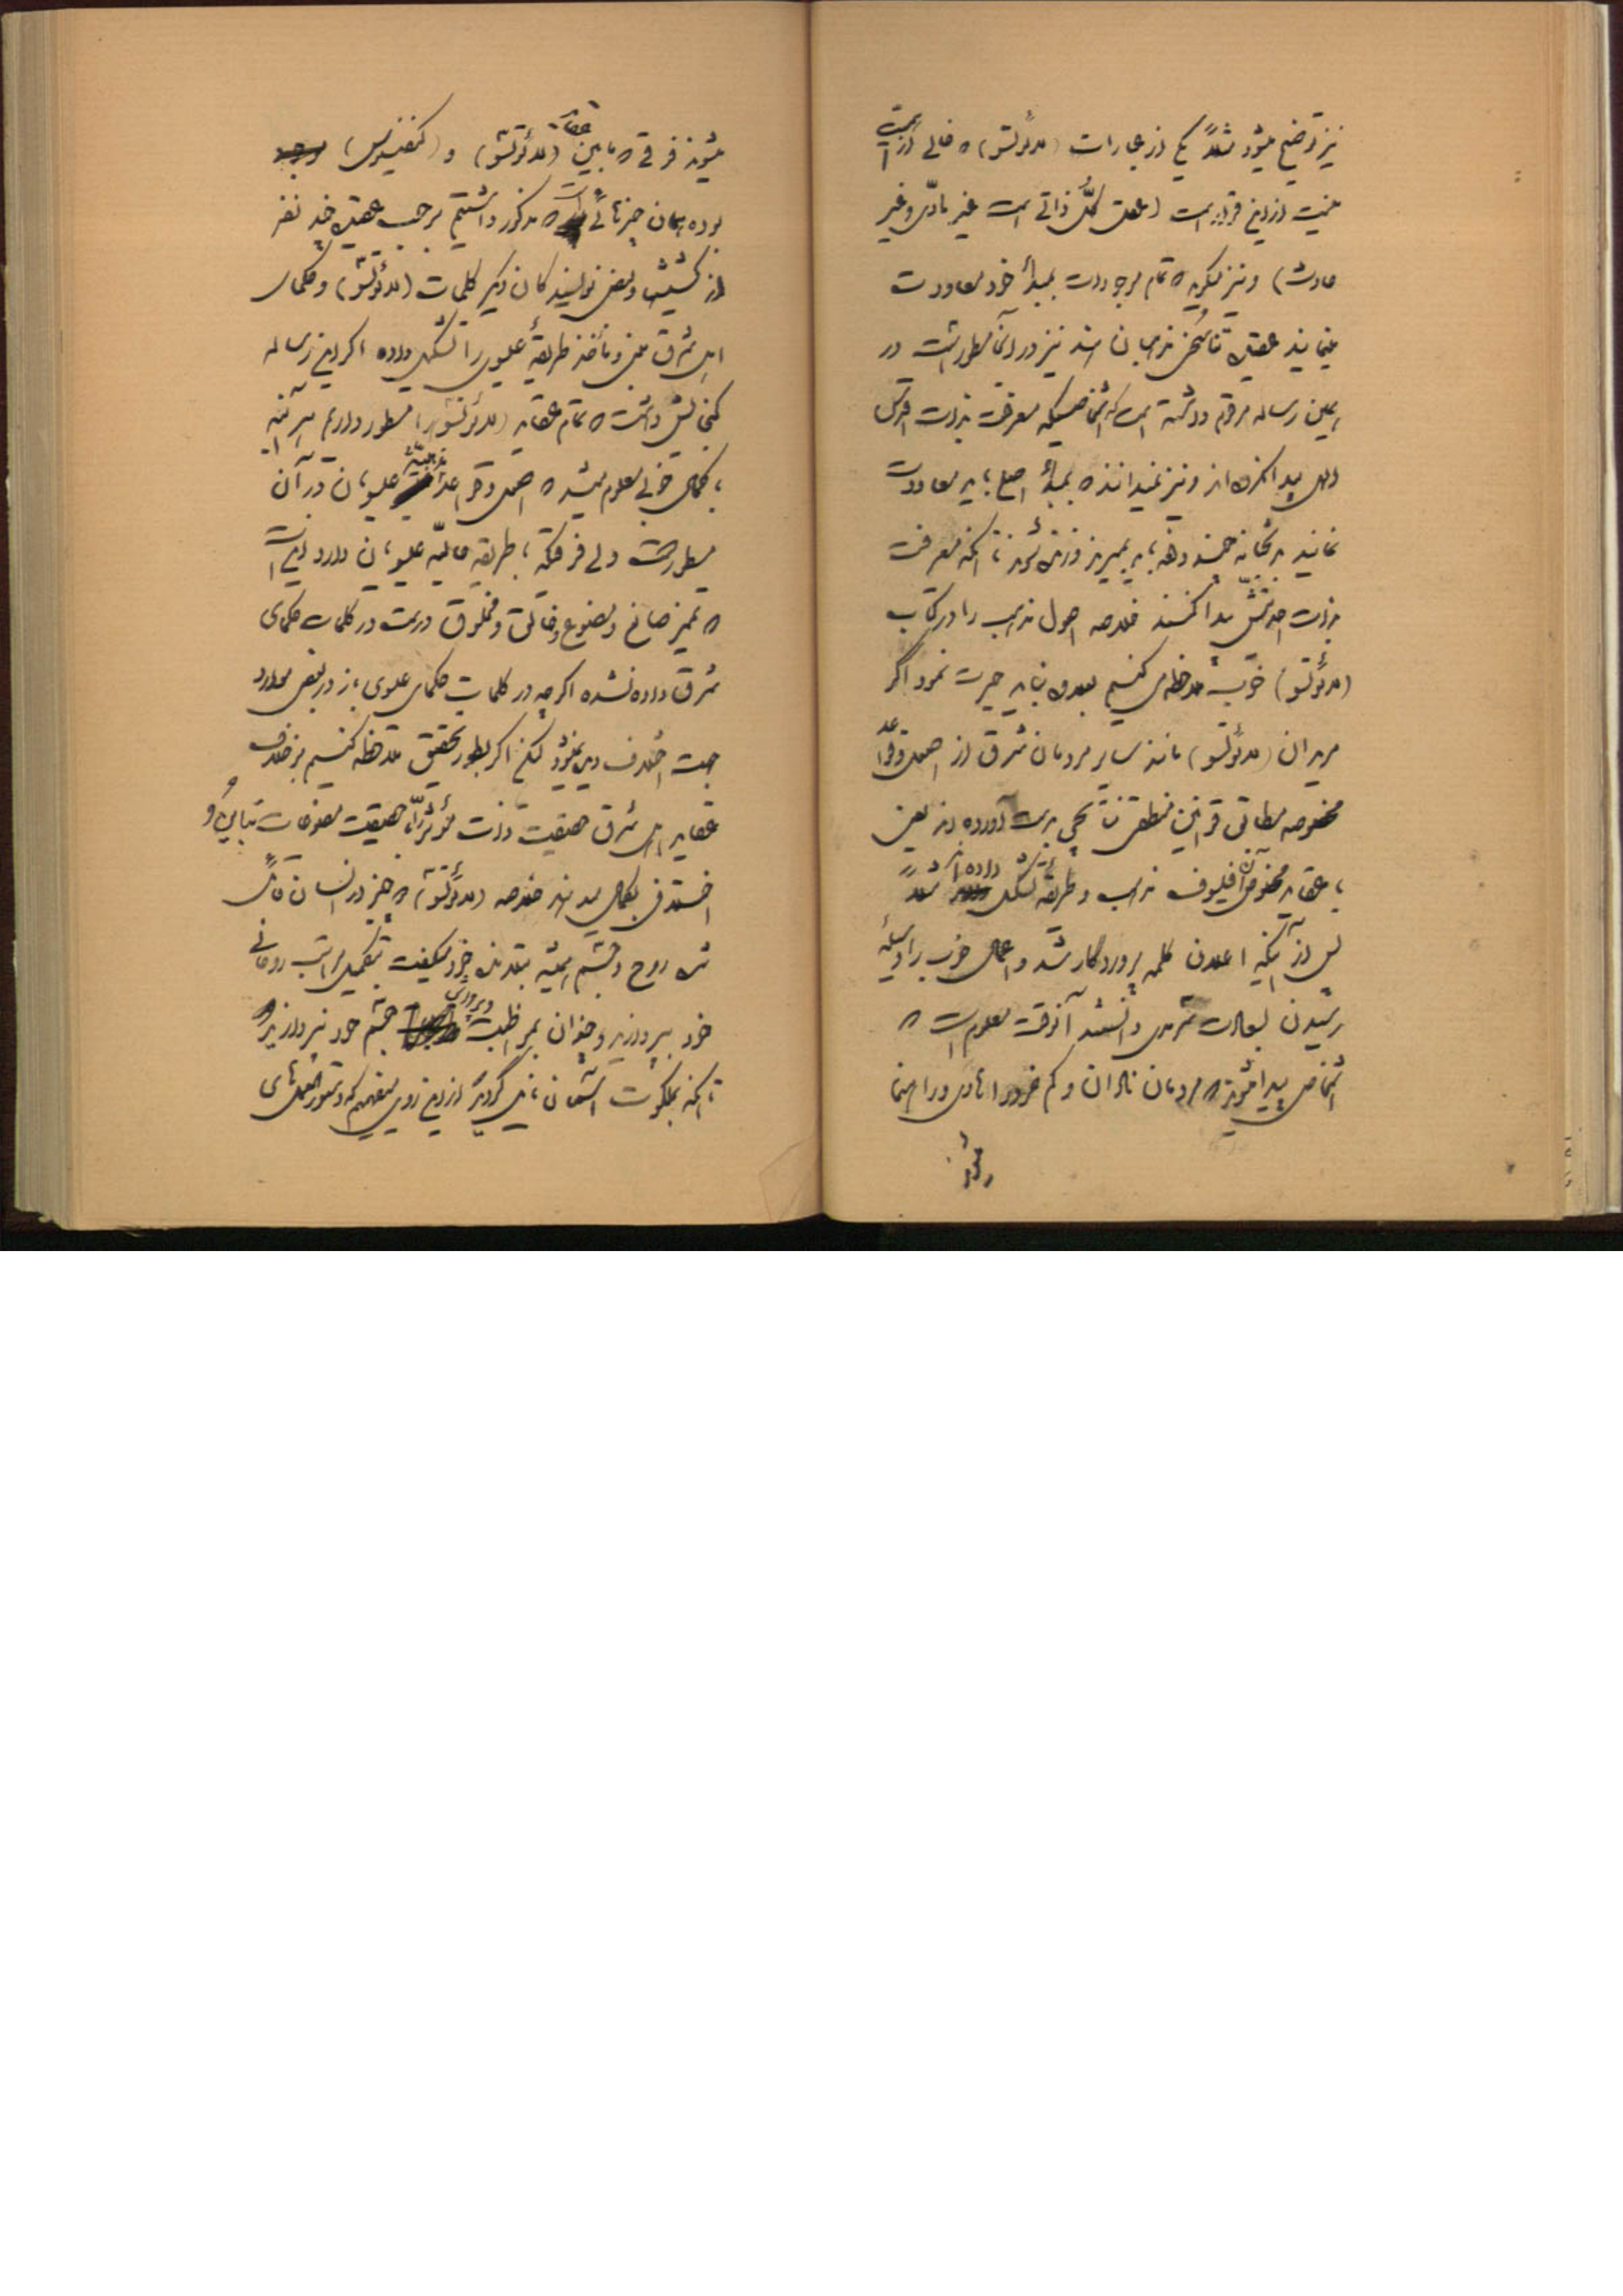 نیز توضیح میشود مثلاً یکی از عبارات (لائوتسو) که خالی از اهمیت
نیست ازاین قرار است (عقل کل ذاتی است غیر مادّی و غیر
حادث) و نیز میگوید که تمام موجودات بمبدأ خود معاودت
مینمایند عقیدهٔ تناسخ مذهبان هند نیز در آنجا مسطور است در
همین رساله مرقوم داشته است که اشخاصیکه معرفت بذات اقدس
الهی پیدا نکرده‌اند و نیز نمیدانند که بمبدأ اصلی باید معاودت
نمایند بدنیا آمده باید بمیرند و زنده شوند تا آنکه معرفت
بذات احدیتش پیدا کنند خلاصه اصول مذهب را در کتاب
(لائوتسو) خوب ملاحظه می‌کنیم بعلاوه نباید حیرت نمود اگر
مریدان (لائوتسو) مانند سایر مردمان شرق از اصول و قواعد
مخصوصه مطابق قوانین منطقی نتایجی بدست آورده‌اند یعنی
با عقاید مخصوص آن فیلسوف مذهب و طریقه تشکیل داده‌اند مثلاً
پس از آنکه اعلان کلمه پروردگار شد و اعمال خوب را وسیلهٔ
رسیدن بسعادت سرمدی دانستند آنوقت معلوم است که
اشخاصی پیدا میشوند که مردمان نادان و کم خرد را هادی و راهنما
میشوند فرقی که مابین عقاید (لائوتسو) و (کنفسیوس)
بوده همان چیزهائی است که مذکور داشتیم برحسب عقیدهٔ چند نفر
از کشیشها و بعضی نویسندگان دیگر کلمات (لائوتسو) و حکمای
اهل شرق مبنی و مأخذ طریقهٔ علیوی را تشکیل داده اگر این رساله
گنجایش داشت که تمام عقاید (لائوتسو) را مسطور داریم هر آینه
بکمال خوبی معلوم میشد که اصول و قواعد مذهبیهٔ علیویان در آن
مسطور است ولی فرقیکه با طریقه حالیه علیویان دارد این است
که تمیز صانع و مصنوع و خالق و مخلوق درست در کلمات حکمای
شرق داده نشده اگرچه در کلمات حکمای علیوی باز در بعضی موارد
جهت اختلاف دیده میشود لکن اگر بطور تحقیق ملاحظه کنیم برخلاف
عقاید اهل شرق حقیقت ذات مؤثر را با حقیقت مصنوعات تباینی و
اختلافی بکمال میدانند خلاصه (لائوتسو) که چیز در انسان قائل
شده روح و جسم همیشه بتلامذه خود میگفت بتکمیل مراتب روحانی
خود بپردازید و چندان بمواظبت و پرورش جسم خود نپردازید
تا آنکه بملکوت آسمان نایل گردید از این روی میفهمیم که دستورالعملهای